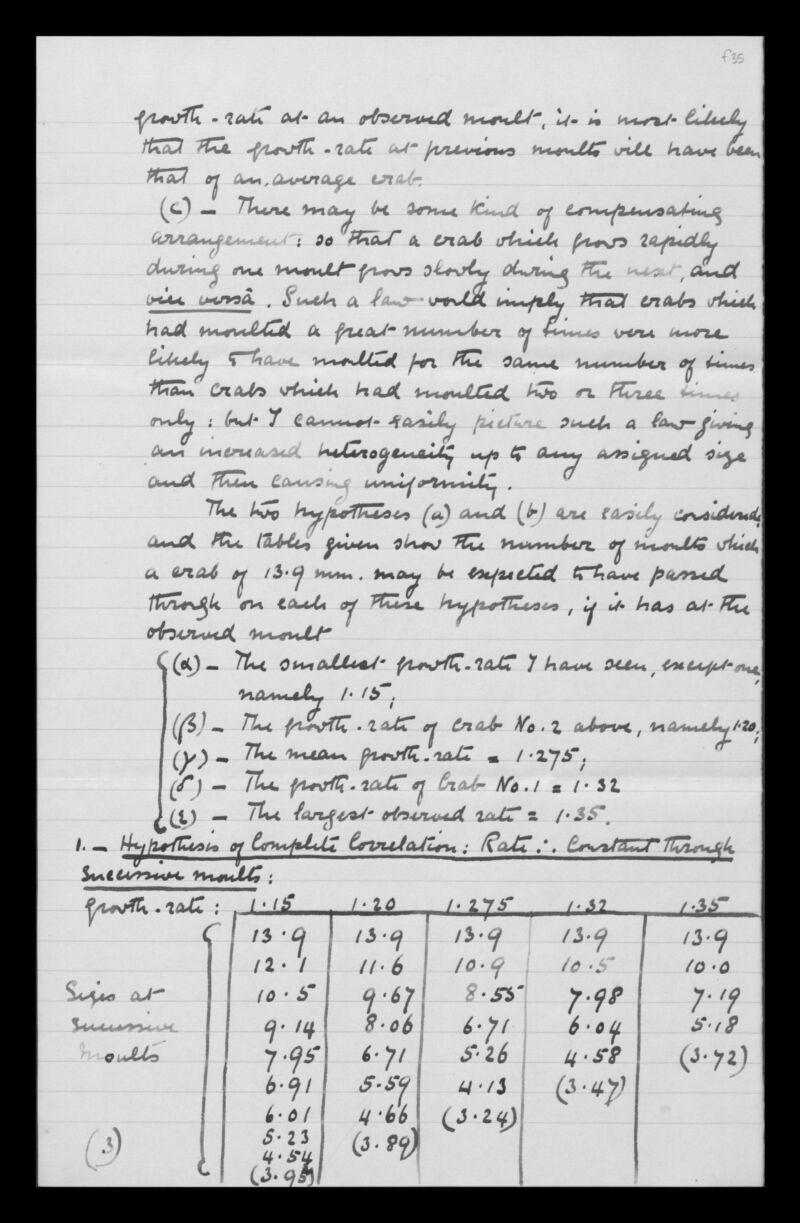 f35
growth-rate at an observed moult, it is most likely
that the growth-rate at previous moults will have been
that of an average crab.
(c) — There may be some kind of compensating
arrangement: so that a crab which grows rapidly
during one moult grows slowly during the next, and
vice versâ. Such a law would imply that crabs which
had moulted a great number of times were more
likely to have moulted for the same number of times
than crabs which had moulted two or three times
only: but I cannot easily picture such a law giving
an increased heterogeneity up to any assigned size
and then causing uniformity.
The two hypotheses (a) and (b) are easily considered,
and the tables given show the number of moults which
a crab of 13.9 mm. may be expected to have passed
through on each of these hypotheses, if it has at the
observed moult
(α) — The smallest growth-rate I have seen, except one,
namely 1.15;
(β) — The growth-rate of crab No. 2 above, namely 1.20;
(γ) — The mean growth-rate = 1.275;
(δ) — The growth-rate of Crab No. 1 = 1.32
(ε) — The largest observed rate = 1.35.
1. — Hypothesis of Complete Correlation: Rate ∴ Constant through
successive moults:
growth-rate: 1.15 1.20 1.275 1.32 1.35
13.9 13.9 13.9 13.9 13.9
12.1 11.6 10.9 10.5 10.0
Sizes at 10.5 9.67 8.55 7.98 7.19
successive 9.14 8.06 6.71 6.04 5.18
moults 7.95 6.71 5.26 4.58 (3.72)
6.91 5.59 4.13 (3.47)
6.01 4.66 (3.24)
(3) 5.23 (3.89)
4.54
(3.95)